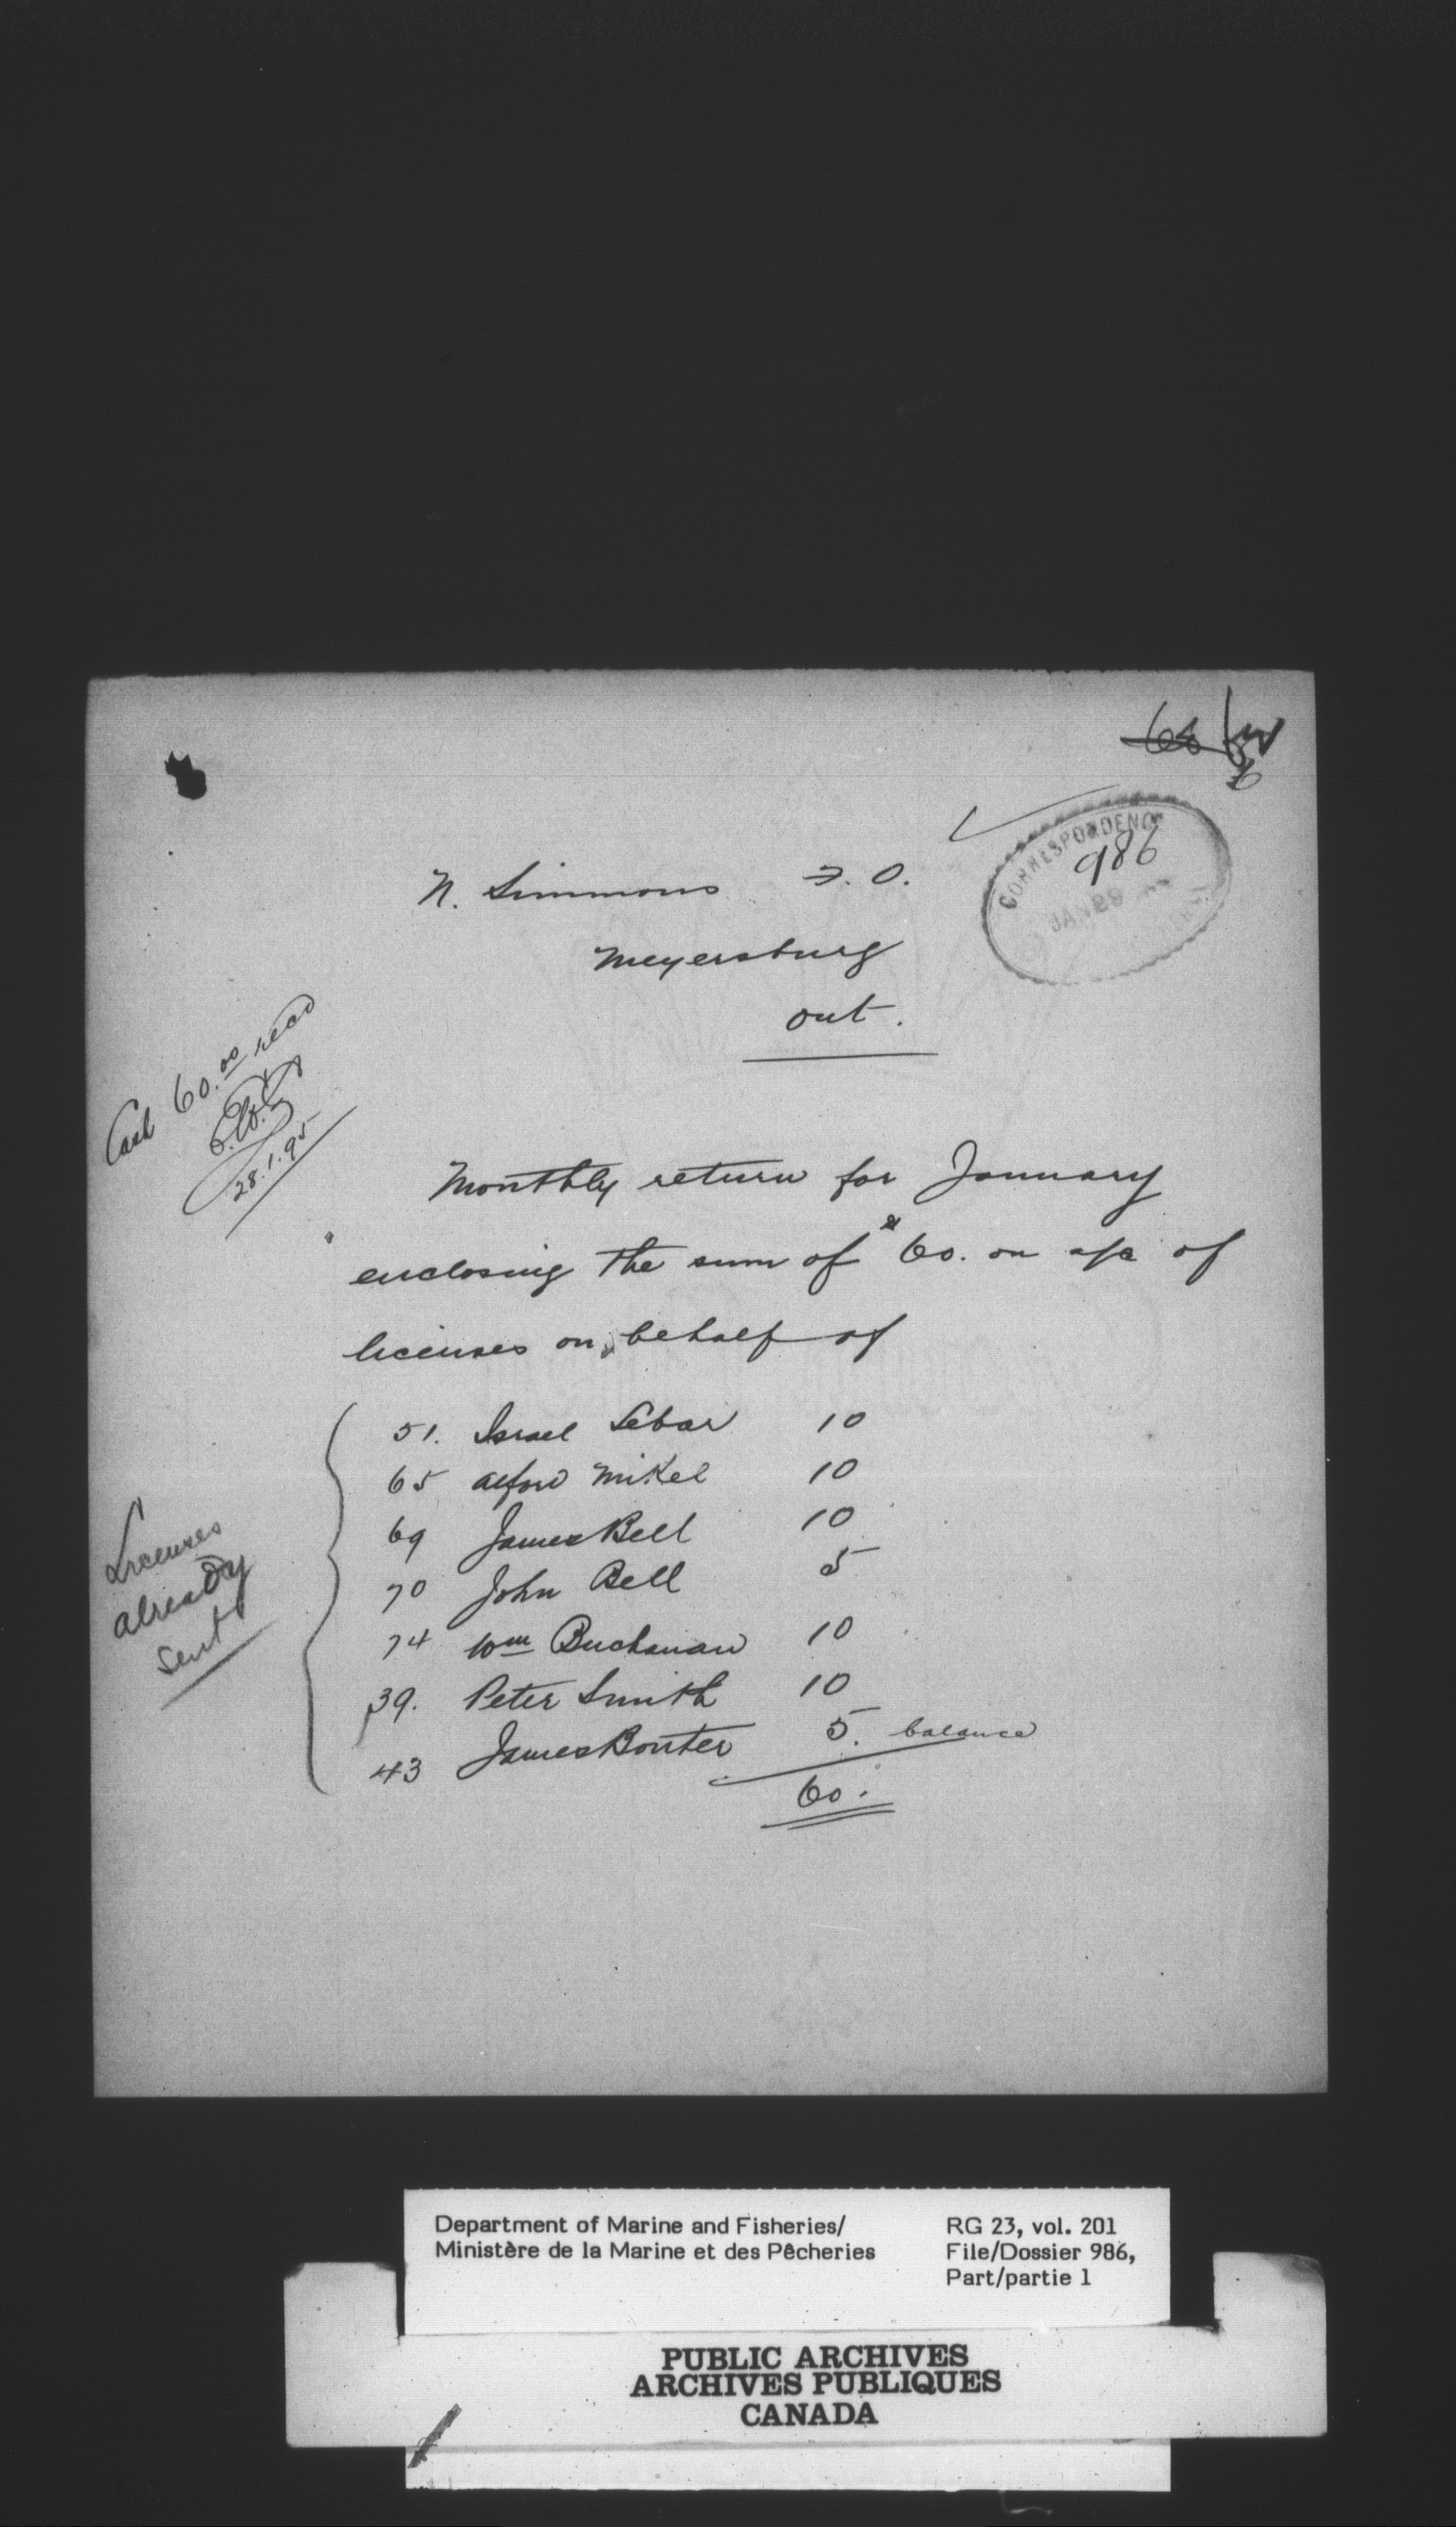 986
CORRESPONDENCE
JAN 29
N. Simmons F.O.
Meyersburg
Ont.
Cash 60.00 recd
28.1.95
Monthly return for January
enclosing the sum of $60. on a/c of
licenses on behalf of
51. Israel Lebar 10
65 Alford Mikel 10
69 James Bell 10
70 John Bell 5
74 Wm Buchanan 10
39. Peter Smith 10
43 James Bonter 5. balance
60.
Licenses
already
sent
Department of Marine and Fisheries/
Ministère de la Marine et des Pêcheries
RG 23, vol. 201
File/Dossier 986,
Part/partie 1
PUBLIC ARCHIVES
ARCHIVES PUBLIQUES
CANADA